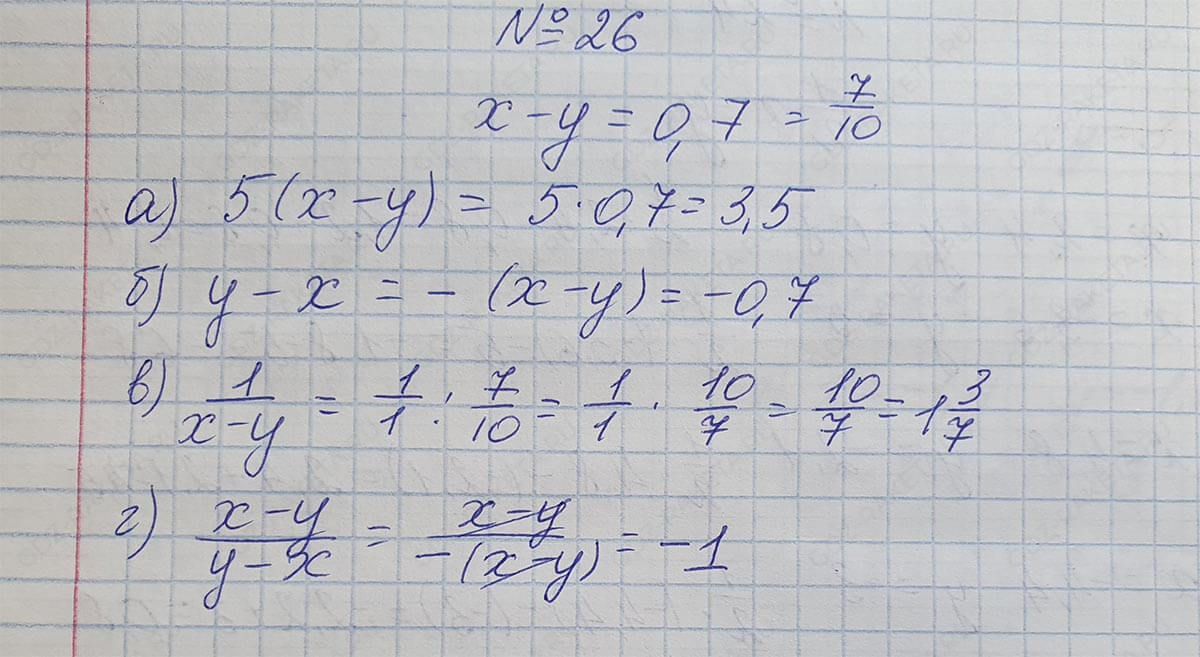 № 26
x - y = 0,7 = 7/10
а) 5(x - y) = 5 · 0,7 = 3,5
б) y - x = - (x - y) = -0,7
в) 1/(x - y) = 1/1 : 7/10 = 1/1 · 10/7 = 10/7 = 1 3/7
г) (x - y)/(y - x) = (x - y)/(-(x - y)) = -1